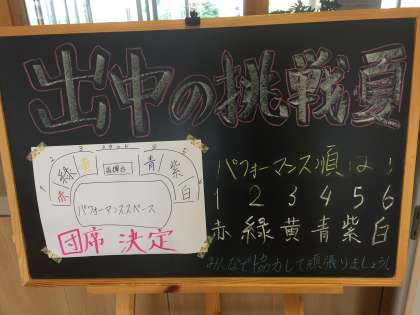 出中の挑戦夏
パフォーマンス順は!
1 2 3 4 5 6
赤 緑 黄 青 紫 白
みんなで協力して頑張りましょう!
スタンド
赤 緑 黄 青 紫 白
パフォーマンススペース
団席 決定